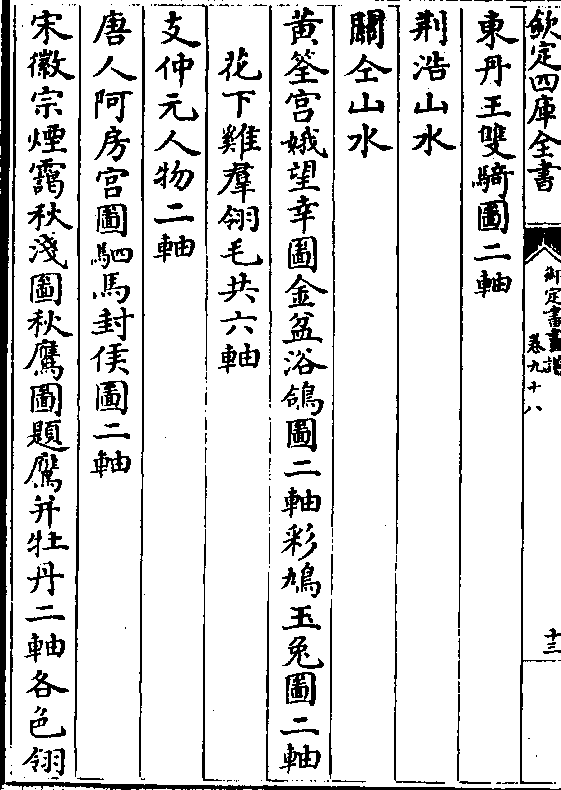 欽定四庫全書
御定書畫譜
卷九十八
十三
東丹王雙騎圖二軸
荆浩山水
關仝山水
黄筌宫娥望幸圖金盆浴鴿圖二軸彩鳩玉兔圖二軸
花下雞羣翎毛共六軸
支仲元人物二軸
唐人阿房宫圖駟馬封侯圖二軸
宋徽宗煙靄秋淺圖秋鷹圖題鷹并牡丹二軸各色翎